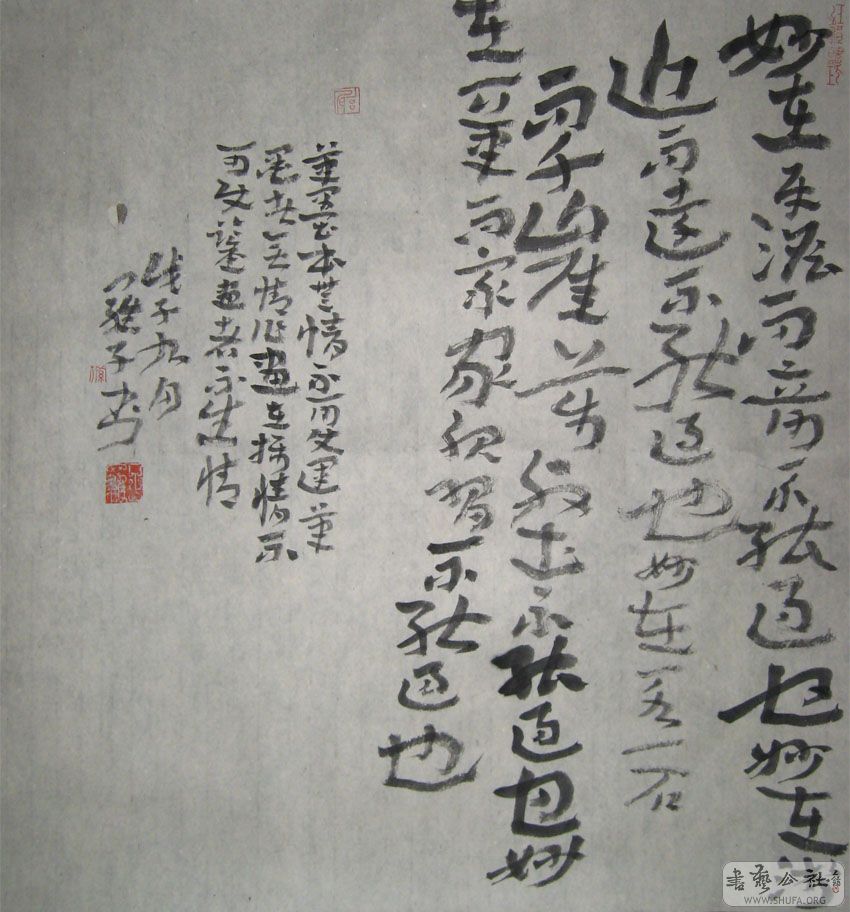 妙在平澹而奇不能過也妙在淺
近而遠不能過也妙在一水一石
而千崖萬壑不能過也妙
在一筆而眾家服習不能過也
筆墨本無情不可使運筆
墨者無情作畫在攝情不
可使鑒畫者不生情
戊子九月
子書
書藝公社
WWW.SHUFA.ORG